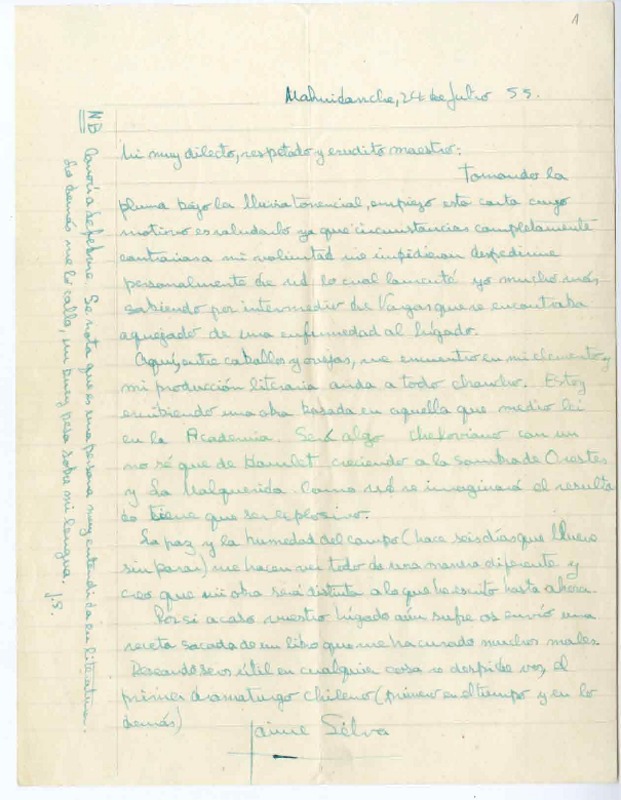 1
Mahuidanche, 24 de Julio 55.
Mi muy dilecto, respetado y erudito maestro:
Tomando la
pluma bajo la lluvia torrencial, empiezo esta carta cuyo
motivo es saludarlo ya que circunstancias completamente
contrarias a mi voluntad me impidieron despedirme
personalmente de Ud. lo cual lamenté yo mucho más
sabiendo por intermedio de Vargas que se encontraba
aquejado de una enfermedad al hígado.
Aquí, entre caballos y ovejas, me encuentro en mi elemento y
mi producción literaria anda a todo chancho. Estoy
escribiendo una obra basada en aquella que medio leí
en la Academia. Será algo chekoviano con un
no sé que de Hamlet creciendo a la sombra de Orestes
y La Malquerida. Como Ud se imaginará el resulta
do tiene que ser explosivo.
La paz y la humedad del campo (hace seis días que llueve
sin parar) me hacen ver todo de una manera diferente y
creo que mi obra será distinta a lo que he escrito hasta ahora.
Por si acaso vuestro hígado aún sufre os envío una
receta sacada de un libro que me ha curado muchos males.
Deseando seros útil en cualquier cosa se despide vos, el
primer dramaturgo chileno (primero en el tiempo y en lo
demás)
Jaime Silva
NB Se nota que es una persona muy entendida en literatura.
Lo demás me lo calla, un buey pesa sobre mi lengua. J.S.